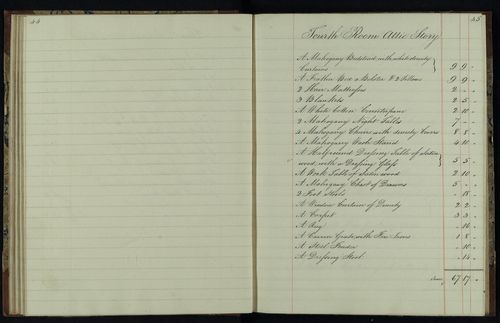 44
45
Fourth Room Attic Story
A Mahogany Bedstead with white dimity
Curtains 9 9 -
A Feather Bed a Bolster & 2 Pillows 9 9 -
2 Hair Mattresses 2 - -
3 Blankets 2 5 -
A White Cotton Counterpane 2 10 -
2 Mahogany Night Tables 7 - -
4 Mahogany Chairs with dimity Covers 8 8 -
A Mahogany Wash Stand 4 10 -
A Halfround Dressing Table of Satin
wood, with a Dressing Glass 5 5 -
A Work Table of Satin wood 2 10 -
A Mahogany Chest of Drawers 5 - -
2 Foot Stools - 18 -
A Window Curtain of Dimity 2 2 -
A Carpet 3 3 -
A Rug - 16 -
A Carron Grate with Fire Irons 1 8 -
A Steel Fender - 10 -
A Dressing Stool - 14 -
67 17 -